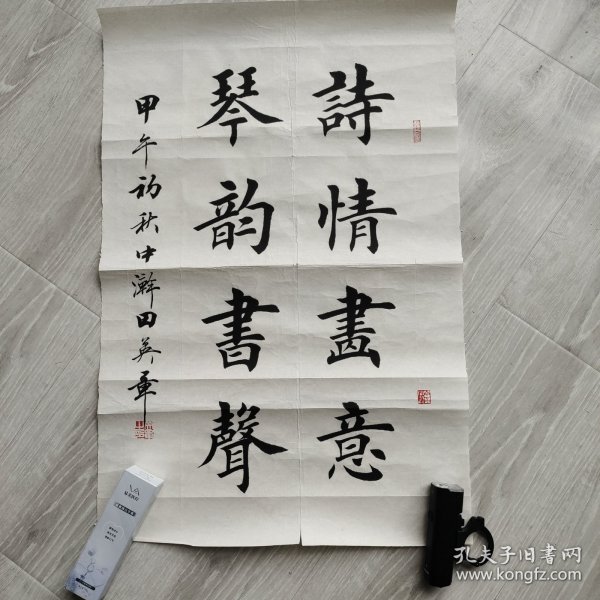 詩情畫意
琴韵書聲
甲午初秋中瀚田英章
孔夫子旧书网
www.kongfz.com